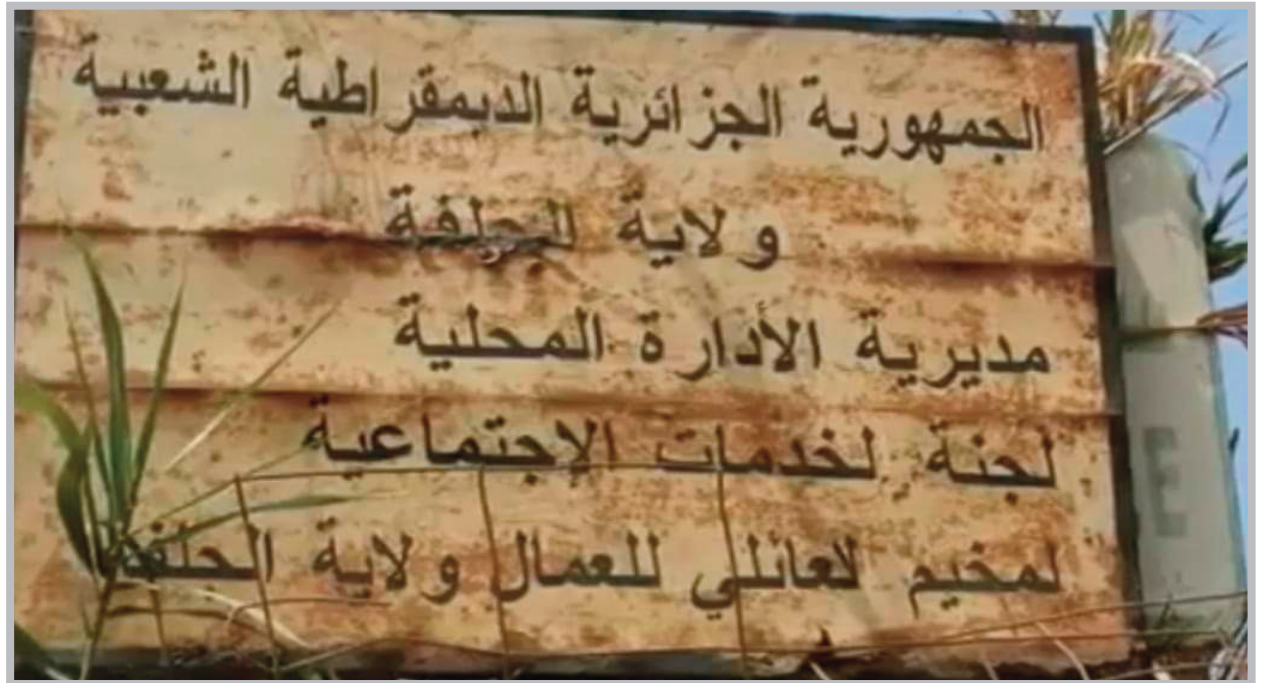 الجمهورية الجزائرية الديمقراطية الشعبية
ولاية الجلفة
مديرية الأدارة المحلية
لجنة لخدمات الإجتماعية
لمخيم لعائلي للعمال ولاية الجلفة
E